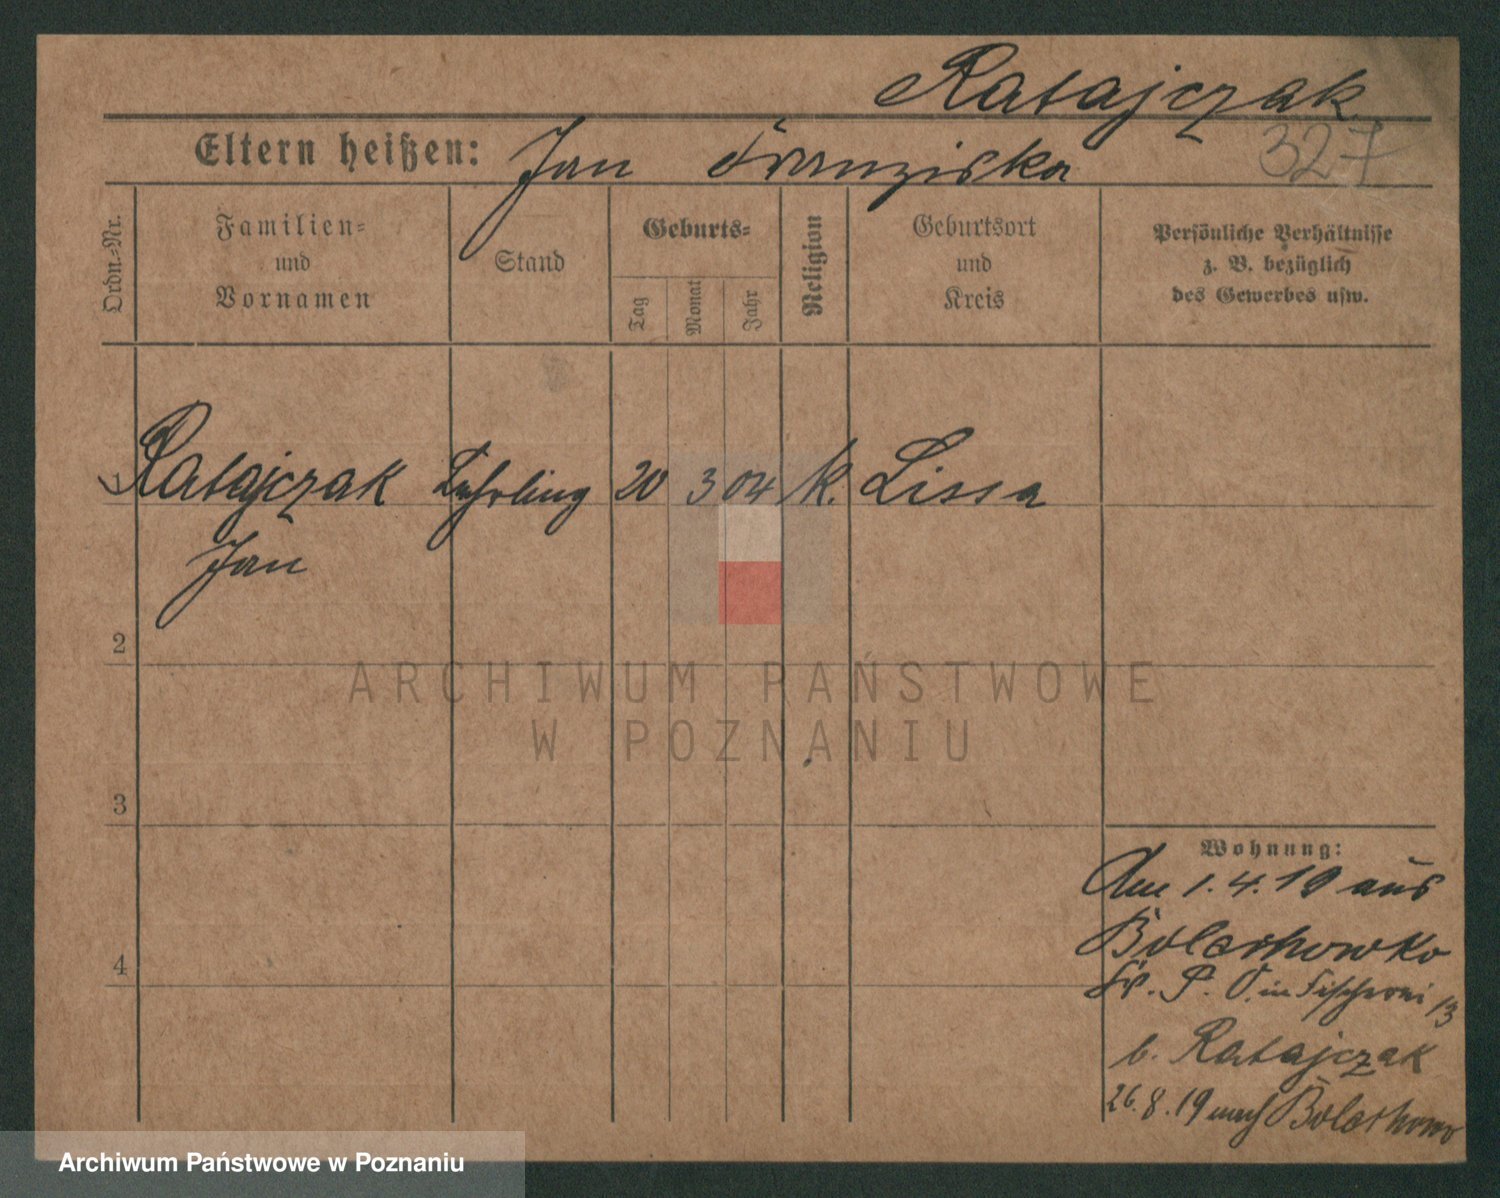 Ratajczak
327
Eltern heißen: Jan Franziska
Ordn.-Nr.
Familien-
und
Vornamen
Stand
Geburts-
Tag
Monat
Jahr
Religion
Geburtsort
und
Kreis
Persönliche Verhältnisse
z. B. bezüglich
des Gewerbes usw.
1 Ratajczak Lehrling 20 3 04 k. Lissa
Jan
2
ARCHIWUM PAŃSTWOWE
W POZNANIU
3
Wohnung:
Am 1.4.19 aus
Bolechowko
4
Kr. P. O. in Fischerei 13
b. Ratajczak
26.8.19 nach Bolechowo
Archiwum Państwowe w Poznaniu